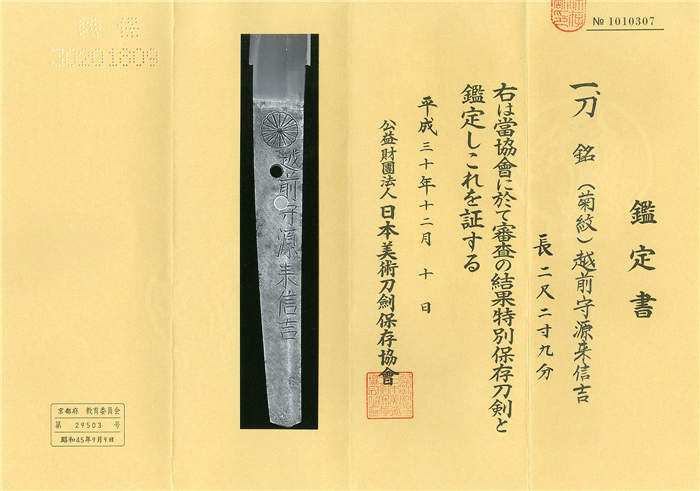 № 1010307
鑑定書
一、刀 銘(菊紋)越前守源来信吉
長二尺二寸九分
右は當協會に於て審査の結果特別保存刀剣と
鑑定しこれを証する
平成三十年十二月十日
公益財團法人 日本美術刀劍保存協會
越前守源来信吉
30201809
京都府 教育委員会
第 29503 号
昭和45年9月9日